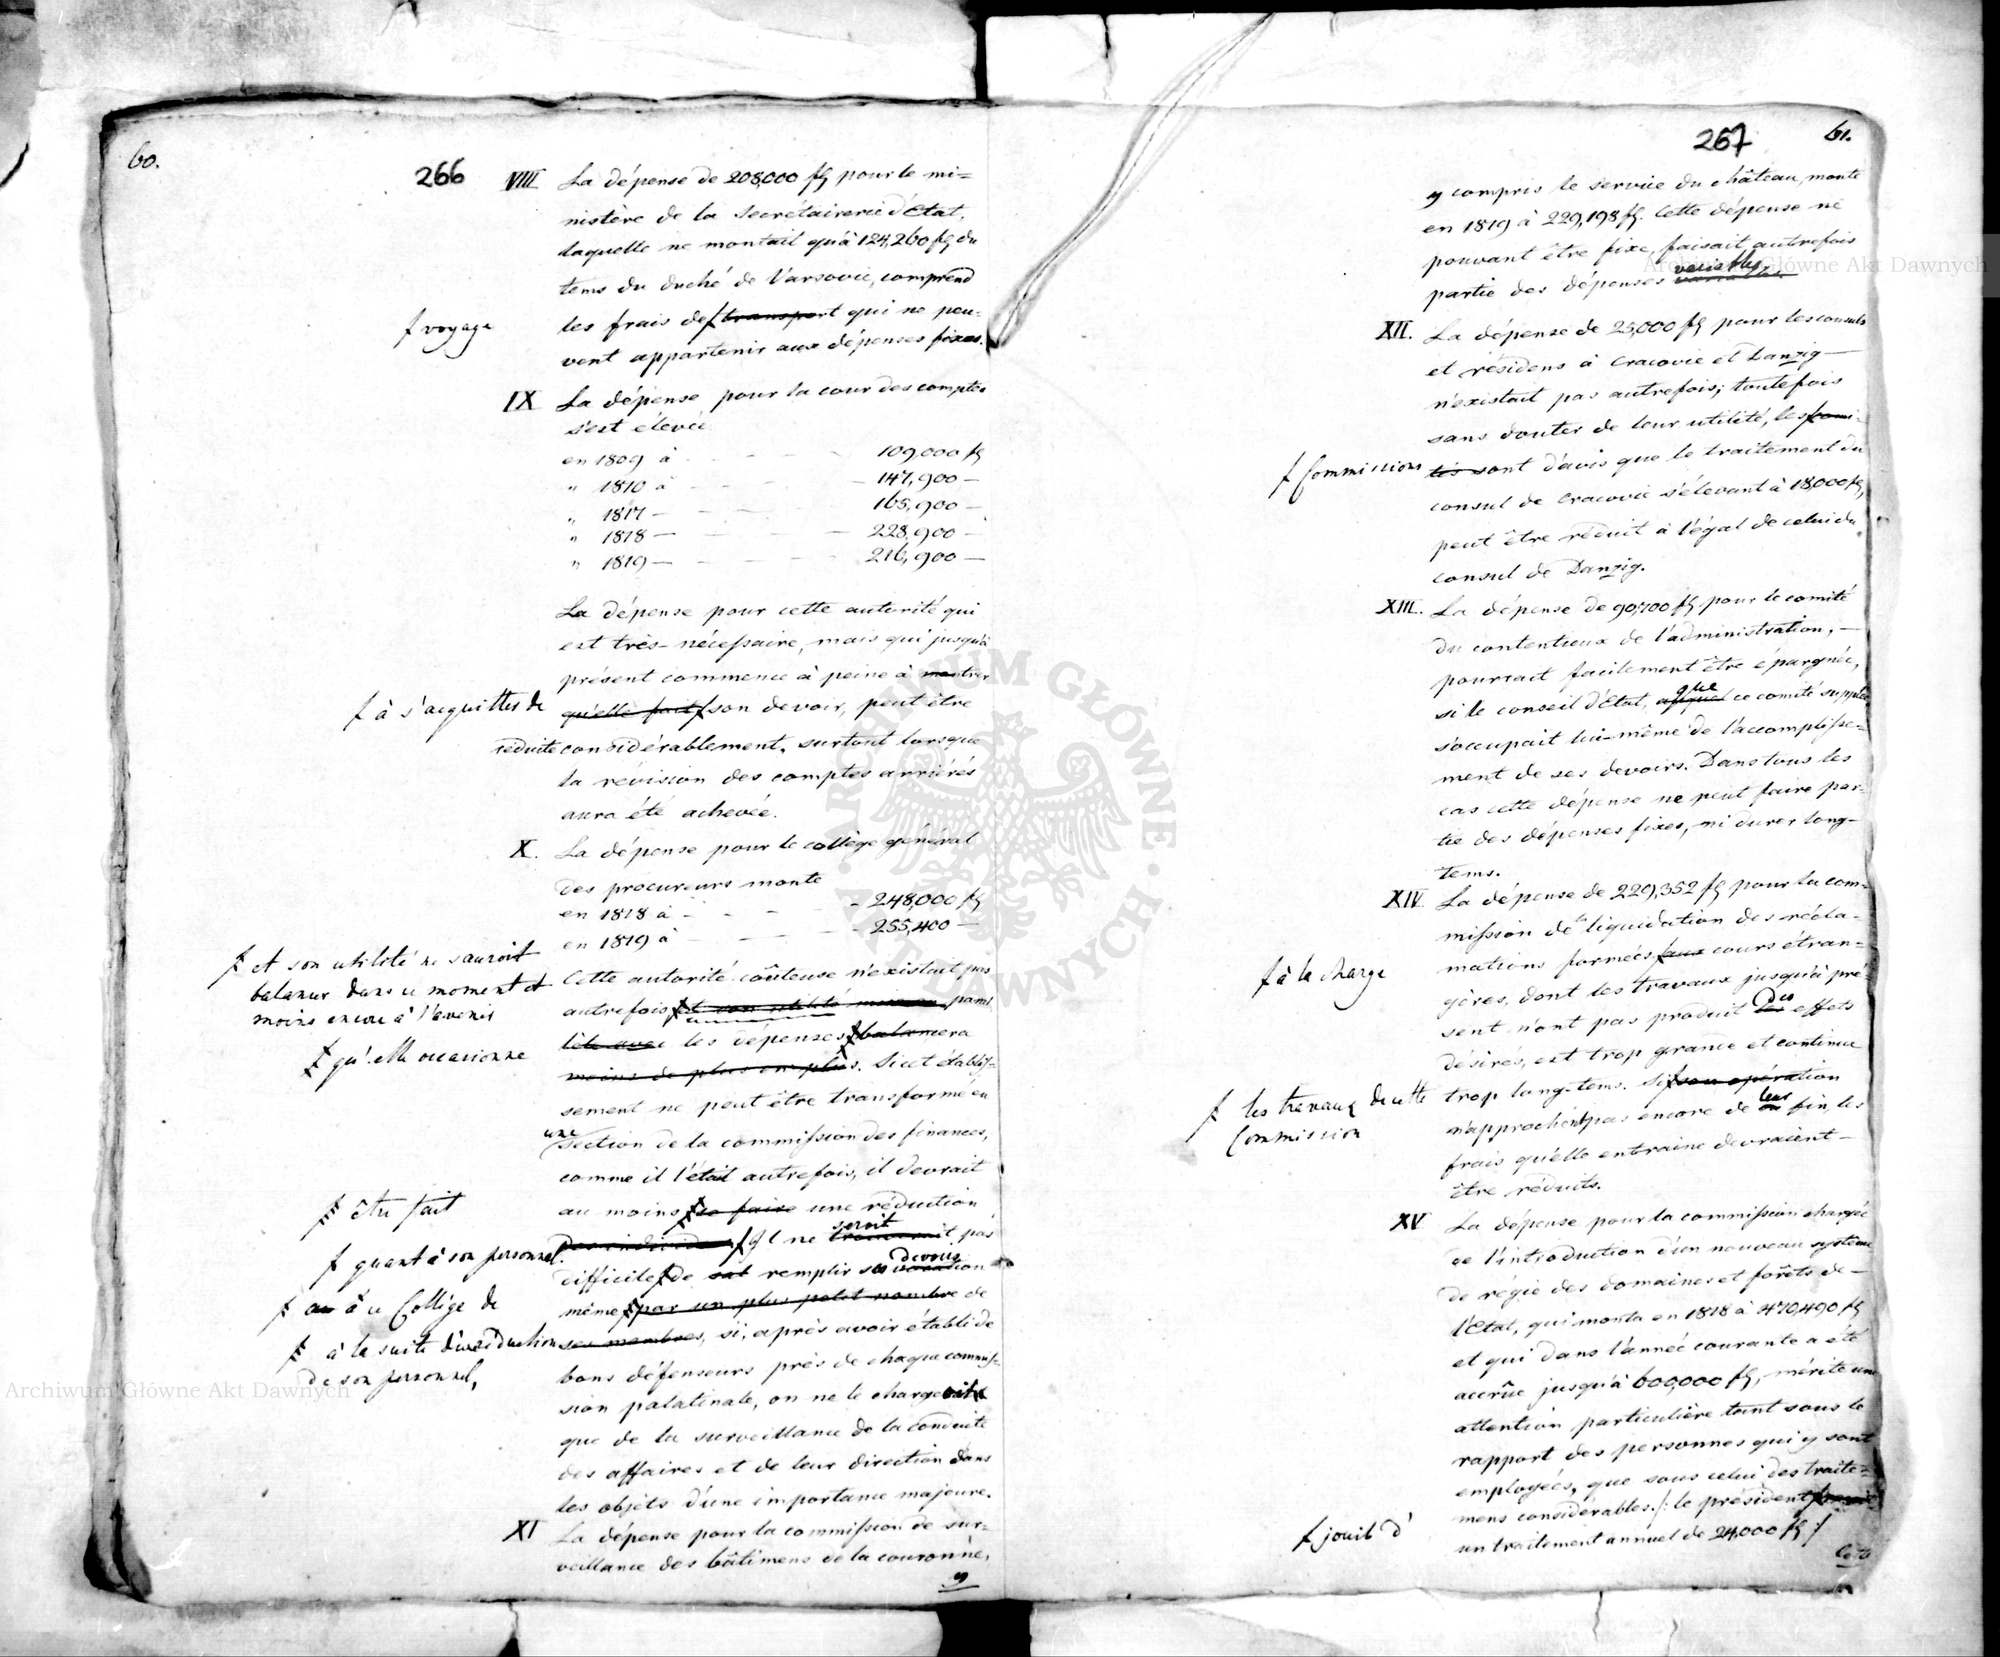 60.
266
VIII La dépense de 208,000 fl pour le mi=
nistère de la Secrétairerie d'Etat,
laquelle ne montait qu'à 124,260 fl du
tems du duché de Varsovie, comprend
ƒ voyage
les frais de ƒ transport qui ne peu=
vent appartenir aux dépenses fixes.
IX La dépense pour la cour des comptes
s'est élevée
en 1809 à - - - 109,000 fl
" 1810 à - - - 147,900 —
" 1817 — - - - 165,900 —
" 1818 — - - - 228,900 —
" 1819 — - - - 216,900 —
La dépense pour cette autorité qui
est très-nécessaire, mais qui jusqu'à
présent commence à peine à montrer
ƒ à s'acquitter de
qu'elle fait ƒ son devoir, peut être
réduite considérablement, surtout lorsque
la révision des comptes arriérés
aura été achevée.
X. La dépense pour le collège général
des procureurs monte
en 1818 à - - - 248,000 fl
en 1819 à - - - 255,400 —
ƒ et son utilité ne sauroit
balancer dans ce moment et
moins encore à l'avenir
Cette autorité coûteuse n'existait pas
autrefois, ƒ et son utilité
ƒ qu'elle occasionne
les dépenses ƒ balancera
moins de plus en plus. Si cet établis=
sement ne peut être transformé en
une section de la commission des finances,
comme il l'était autrefois, il devrait
ƒ être fait
au moins ƒ se faire une réduction
ƒ quant à son personnel.
ƒ Il ne seroit pas
ƒ au à ce Collège de
difficile ƒ de remplir ses devoirs vocation
même ƒ par un plus petit nombre de
ƒ à la suite d'une réduction
de son personnel,
ses membres, si, après avoir établi de
bons défenseurs près de chaque commis=
sion palatinale, on ne le chargeoit
que de la surveillance de la conduite
des affaires et de leur direction dans
les objets d'une importance majeure.
XI La dépense pour la commission de sur=
veillance des bâtimens de la couronne,
y
267
61.
y compris le service du château, monte
en 1819 à 229,198 fl. Cette dépense ne
pouvant être fixe, faisait autrefois
partie des dépenses variables.
XII. La dépense de 25,000 fl pour les consuls
et résidens à Cracovie et Danzig —
n'existait pas autrefois; toutefois
sans douter de leur utilité, les ƒ comi-
ƒ Commissions
tés sont d'avis que le traitement du
consul de Cracovie s'élevant à 18,000 fl,
peut être réduit à l'égal de celui du
consul de Danzig.
XIII. La dépense de 90,700 fl pour le comité
du contentieux de l'administration, —
pourrait facilement être épargnée,
si le conseil d'Etat, auquel que ce comité supplée
s'occupait lui-même de l'accomplisse=
ment de ses devoirs. Dans tous les
cas cette dépense ne peut faire par=
tie des dépenses fixes, ni durer long-
tems.
XIV La dépense de 229,352 fl pour la com=
mission de la liquidation des récla-
ƒ à la charge
mations formées ƒ aux cours étran=
gères, dont les travaux jusqu'à pré
sent n'ont pas produit des les effets
désirés, est trop grande et continue
ƒ les travaux de cette
Commission
trop long-tems. Si ƒ son opération
n'approchent pas encore de leur fin, les
frais qu'elle entraine devraient —
être réduits.
XV La dépense pour la commission chargée
de l'introduction d'un nouveau système
de régie des domaines et forêts de —
l'Etat, qui monta en 1818 à 470,490 fl
et qui dans l'année courante a été
accrûe jusqu'à 600,000 fl, mérite une
attention particulière tant sous le
rapport des personnes qui y sont
employées, que sous celui des traite=
mens considérables. /: le président ƒ
ƒ jouit d'
un traitement annuel de 24,000 fl :/
Archiwum Główne Akt Dawnych
Archiwum Główne Akt Dawnych
ARCHIWUM GŁÓWNE · AKT DAWNYCH ·